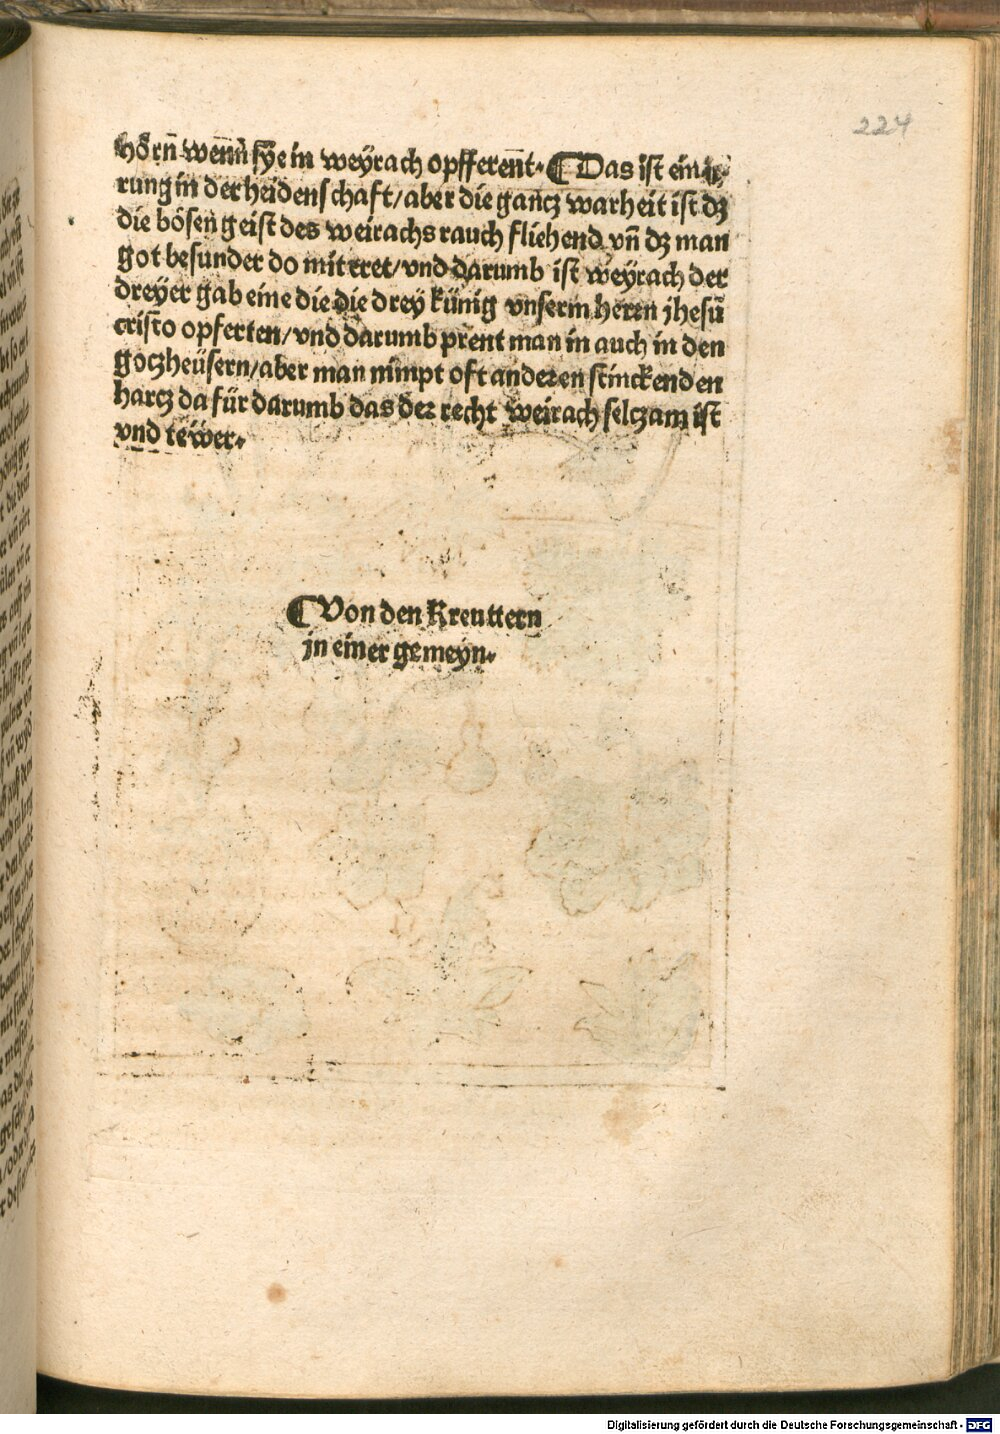 224
hörñ wenñ sÿe in weÿrach opfferent. ¶ Das ist ein ir,
rung in der heidenschaft/aber die gancz warheit ist dz
die bösen geist des weirachs rauch fliehend vñ dz man
got besunder do mit eret/vnd darumb ist weÿrach der
dreÿer gab eine die die dreÿ künig vnserm herrn jhesu
cristo opferten/vnd darumb prent man in auch in den
goczheüsern/aber man nimpt oft anderen stinckenden
harcz da für darumb das der recht weirach selczam ist
vnd teẅer.
¶ Von den Kreuttern
in einer gemeÿn.
Digitalisierung gefördert durch die Deutsche Forschungsgemeinschaft - DFG